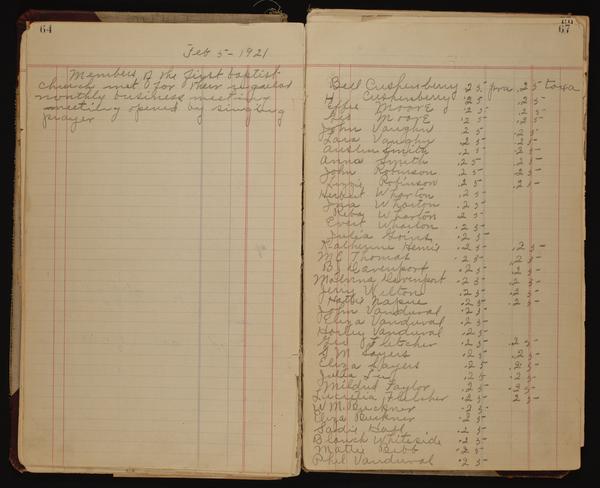 64
Feb 5 - 1921
Members of the first baptist
church met for their regular
monthly business meeting
meeting opened by singing
prayer
67
Bell Cushenberry .25 pra .25
H Cushenberry .25 .25
Effie Moore .25 .25
Geo Moore .25 .25
John Vaughn .25 .25
Lara Vaughn .25 .25
Austin Smith .25 .25
Anna Smith .25 .25
John Robinson .25 .25
Lizzie Robinson .25 .25
Herbert Wharton .25
Inia Wharton .25
Reba Wharton .25
Evert Wharton .25
Julia Goins .25
Katherine .25 .25
MC Thomas .25 .25
BJ Davenport .25 .25
Davenport .25 .25
Jerry Wilton .25 .25
Hattie Napue .25 .25
John Vanduval .25
Eliza Vanduval .25
Hosley Vanduval .25
Geo Fletcher .25 .25
G M Sayers .25 .25
Eliza Sayers .25 .25
Julia .25 .25
Mildred Taylor .25 .25
Lucretia Fletcher .25 .25
W M Buckner .25
Eliza Buckner .25
Sadie .25
Blanch Whiteside .25
Mattie Bibb .25
Phil Vanduval .25